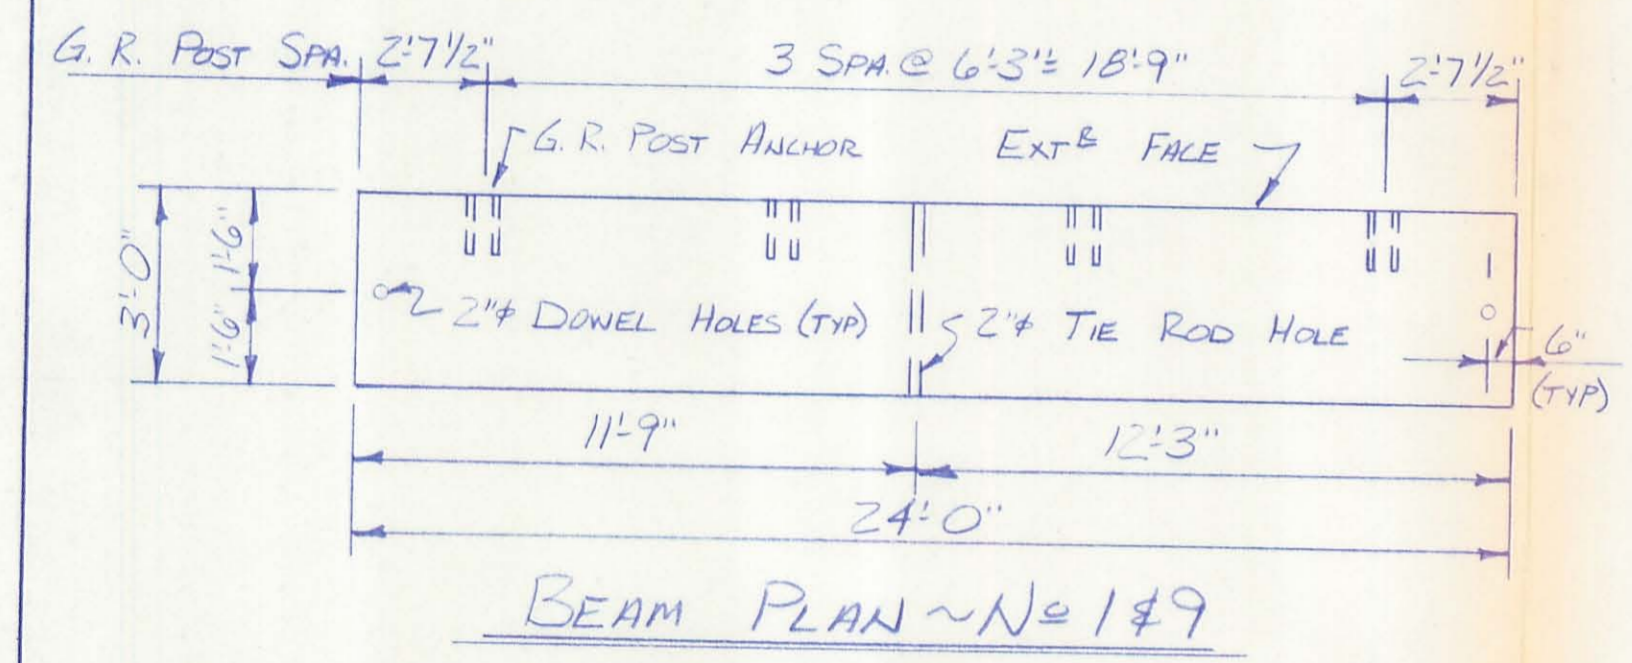 G. R. POST SPA. 2'-7 1/2" 3 SPA. @ 6'-3" = 18'-9" 2'-7 1/2"
G. R. POST ANCHOR EXTR FACE
3'-0" 1'-6" 1'-6"
2"ϕ DOWEL HOLES (TYP) 2"ϕ TIE ROD HOLE 6"
(TYP)
11'-9" 12'-3"
24'-0"
BEAM PLAN ~ Nº 1 & 9